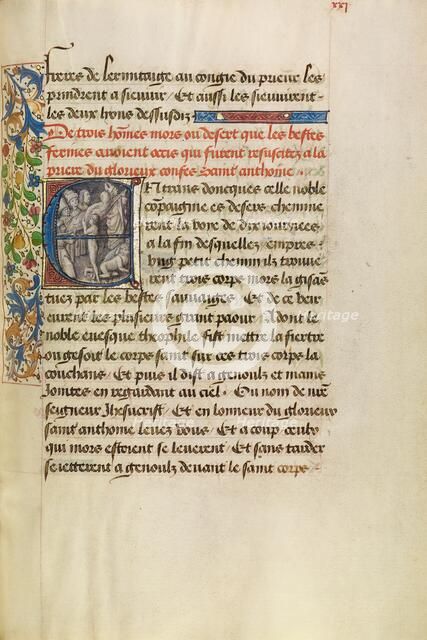 xxj
freres de lermitaige au congie du prieur les
prindrent a sieuuir / Et aussi les sieuuirent
les deux lyons dessusdis
De trois hommes mors ou desert que les bestes
fermes auoient occis qui furent resuscitez a la
priere du glorieux confes saint anthoine
Entrans doncques celle noble
compaignie es desers chemine
rent la voye de dix iournees
a la fin desquelles / empres
vng petit chemin ilz trouue
rent trois corps mors la gisans
tuez par les bestes sauuaiges / Et de ce veir
eurent les plusieurs grant paour / Adont le
noble euesque theophile fist mettre la fiertre
ou gesoit le corps saint sur ces trois corps la
couchans / Et puis il dist a genoulz et mains
Jointes en regardant au ciel / Ou nom de nostre
seigneur Jhesucrist / Et en lonneur du glorieux
saint anthoine leuez vous / Et a coup ceulx
qui mors estoient se leuerent / Et sans tarder
se ietterent a genoulz deuant le saint corps
heritage